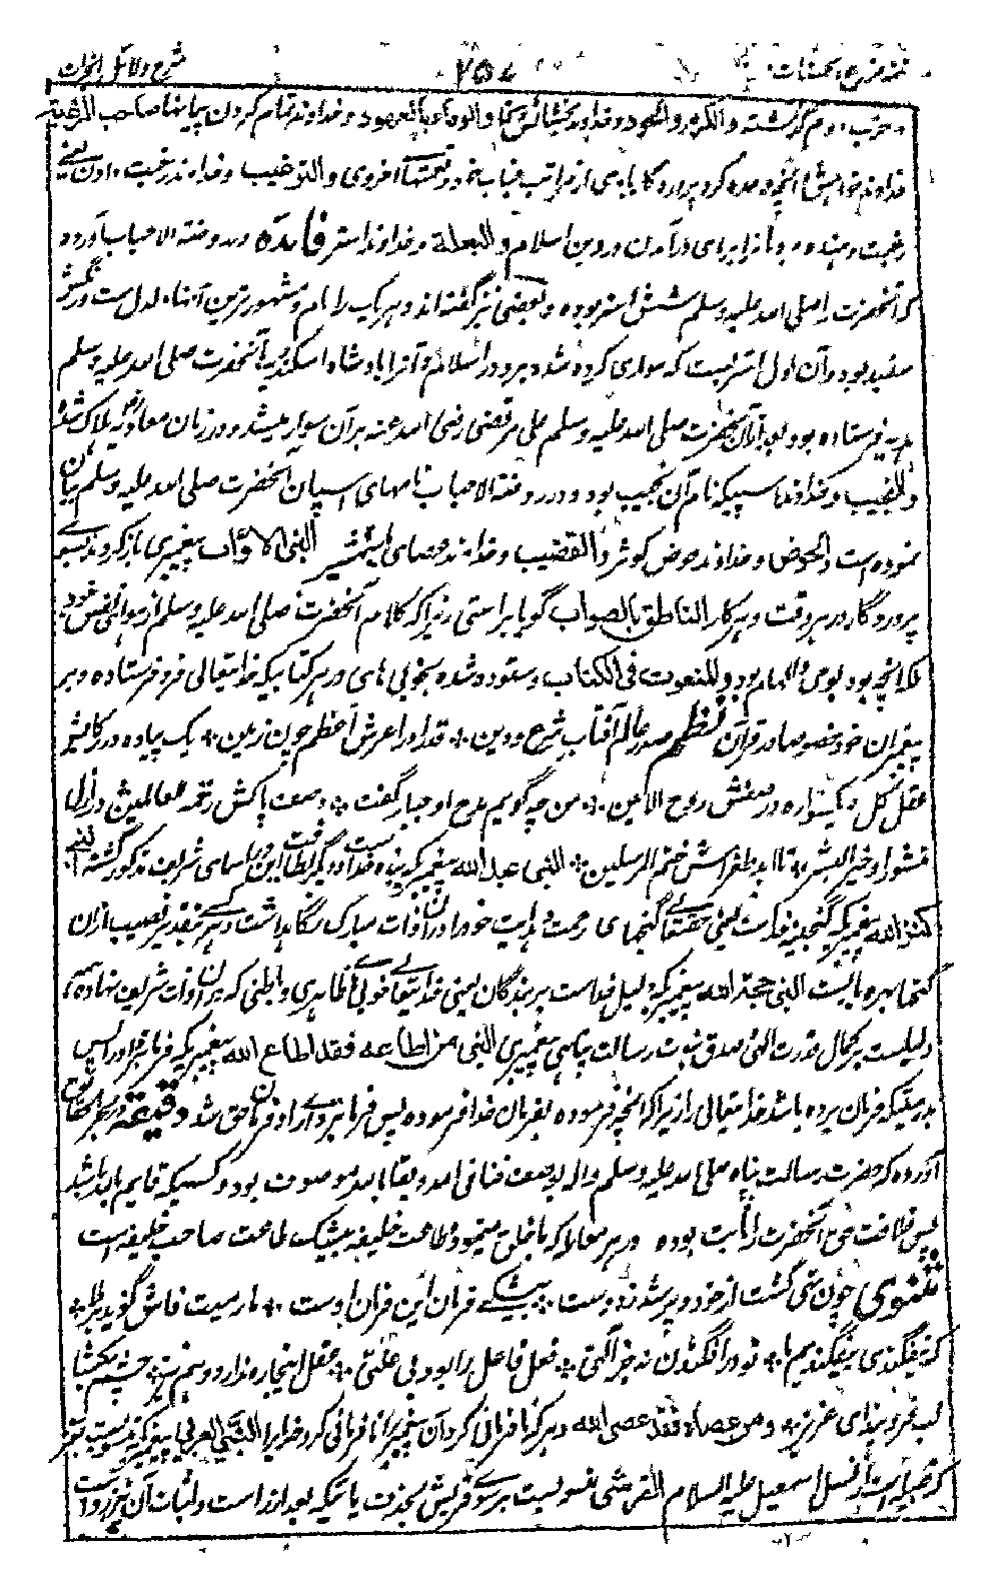 شرح دلائل الخیرات
۲۵۷
والکرم والجود و خداوند بخشائش و الوفاء بالعهود و خداوند تمام کردن پیمانها صاحب الرغبة
خداوند خواهش و والترغیب و خداوند رغبت دادن یعنی
رغبت دهنده بود برای درآمدن در دین اسلام والبغلة و خداوند استر فائدہ در روضة الاحباب آورده
که آنحضرت را صلی الله علیه وسلم شش استر بوده و بعضی نیز گفته اند و هر یک را نام و مشهورترین آنها دلدل ست و رنگش
سفید بود و آن اول استریست که سواری کرده شد بر او در اسلام و آنرا بادشاه اسکندریه بآنحضرت صلی الله علیه وسلم
هدیه فرستاده بود بعد از آن آنحضرت صلی الله علیه وسلم علی مرتضی رضی الله عنه بر آن سوار میشد و در زمان معاویه هلاک شد
والنجیب و خداوند اسپیکه نام آن نجیب بود و در روضة الاحباب نامهای اسپان آنحضرت صلی الله علیه وسلم بیان
نموده است والحوض و خداوند حوض کوثر والقضیب و خداوند عصای یا شمشیر النبی الاوّاب پیغمبری باز گردنده بسوے
پروردگار در هر وقت و هر کار الناطق بالصواب گویا براستی زیرا که کلام آنحضرت صلی الله علیه وسلم از هوای نفس خود نبود
بلکه آنچه بود بوحی و الهام بود المنعوت فی الکتاب و ستوده شده بخوبی های در هر کتابیکه خدایتعالی فرو فرستاده و بر
پیغمبران خود خصوصا در قرآن نظم صدر عالم آفتاب شرع و دین * قدر او را عرش اعظم چون زمین * یک پیاده در رکابش
عقل کل * یکسواره در صفش روح الامین * من چه گویم مدح او جبار گفت * وصف پاکش رحمة للعالمین * در ازل
منشور او خیر البشر * تا ابد طغراش ختم المرسلین * النبی عبد الله پیغمبریکه بنده خداست در اسمای شریف مذکور گشته النبی
کنز الله پیغمبریکه گنجینه خداست یعنی حقتعالے گنجهای رحمت و هدایت خود را در آن ذات مبارک نگاهداشت و هر کسے بقدر نصیب ازان
گنجها بهره یافت النبی حجة الله پیغمبریکه دلیل خداست بر بندگان یعنی خدایتعالے خوبیهای ظاهری و باطنی که در آن ذات شریف نهاده
دلیلست بر کمال قدرت الهی و صدق نبوت و رسالت پناهی پیغمبری النبی من اطاعه فقد اطاع الله پیغمبریکه فرمانبرد او را پس
بدرستیکه فرمان برده باشد خدایتعالی را زیرا که آنچه فرموده بفرمان خدا فرموده پس فرمانبردارے او فرمان حق شد دقیقه در بحر الحقائق
آورده که حضرت رسالت پناه صلی الله علیه وسلم و آله بوصف فنا فی الله و بقا بالله موصوف بود و کسیکه قایم بالله باشد
پس خلافت حق آنحضرت را ثابت بوده و در هر معامله که با خلق مینمود و طاعت خلیفه بیشک طاعت صاحب خلیفه است
مثنوی چون نبی گشت از خود و پر شد ز دوست * بیشکے فرمان این فرمان اوست * مارمیت فاش گوید برملا *
که نیفگندی بیفگندیم ما * تو در افگندن نه جز آلتی * فعل فاعل را بود بی علتی * عقل اینجا ره ندارد دم نیز * چشم بکشا
لب فروبند ای عزیز * ومن عصاه فقد عصی الله و هر که نافرمانی کرد آن پیغمبر را نافرمانی کرد خدایرا النبی العربی پیغمبریکه منسوبست بعرب
که قبیله ایست از نسل اسمعیل علیه السلام القرشی منسوبست بسوے قریش بحذف یا که بعد از راست و اثبات آن نیز رواست